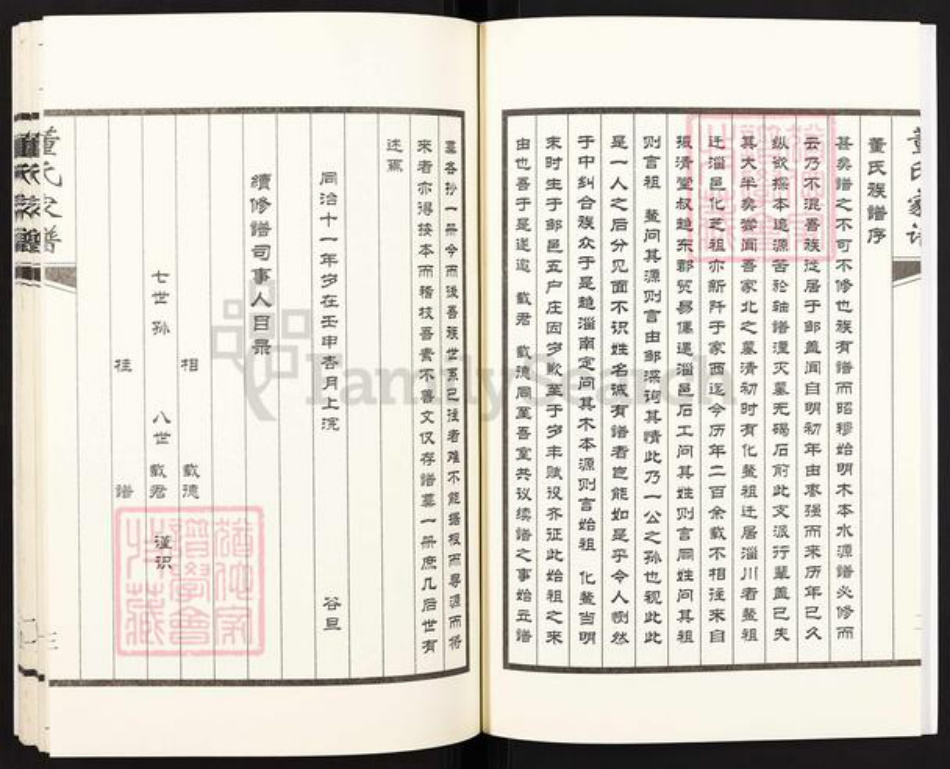 董氏族譜序
甚矣譜之不可不修也族有譜而昭穆始明木本水源譜必修而
云乃不混吾族迁居于邹盖闻自明初年由枣强而来历年已久
纵欲探本追源苦於轴譜湮灾墓无碣石前此支派行辈盖已失
其大半矣尝闻吾家北之墓清初时有化鳌祖迁居淄川者鳌祖
迁淄邑化芝祖亦新阡于家西迄今历年二百余载不相往来自
振清堂叔越东郡贸易偶遇淄邑石工问其姓则言同姓问其祖
则言祖 鳌问其源则言由邹梁询其情此乃一公之孙也视此此
是一人之后分见面不识姓名诚有譜者岂能如是乎令人恻然
于中纠合族众于是越淄南定问其木本源则言始祖 化鳌当明
末时生于邹邑五户庄因岁歉至于岁丰赋役齐征此始祖之来
由也吾于是遂邀 载君 载德同至吾室共议续譜之事始立譜
墓各抄一册今而後吾族世系已往者难不能据根而寻源而将
来者亦得按本而稽枝吾素不善文仅存譜墓一册庶几后世有
述焉
同治十一年岁在壬申杏月上浣 谷旦
續修譜司事人目录
相 载德
七世孙 八世 载君 谨识
桂 譜
董氏家譜
FamilySearch